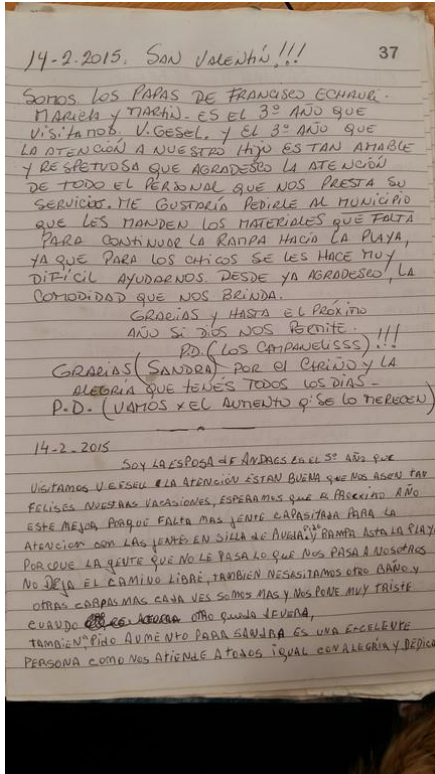 37
14-2.2015. SAN VALENTÍN!!!
SOMOS LOS PAPAS DE FRANCISCO ECHAURI.
MARIELA Y MARTÍN. ES EL 3º AÑO QUE
VISITAMOS V. GESEL. Y EL 3º AÑO QUE
LA ATENCIÓN A NUESTRO HIJO ES TAN AMABLE
Y RESPETUOSA QUE AGRADESCO LA ATENCIÓN
DE TODO EL PERSONAL QUE NOS PRESTA SU
SERVICIOS. ME GUSTARÍA PEDIRLE AL MUNICIPIO
QUE LES MANDEN LOS MATERIALES QUE FALTA
PARA CONTINUAR LA RAMPA HACÍA LA PLAYA,
YA QUE PARA LOS CHICOS SE LES HACE MUY
DIFÍCIL AYUDARNOS. DESDE YA AGRADESCO, LA
COMODIDAD QUE NOS BRINDA.
GRACIAS Y HASTA EL PRÓXIMO
AÑO SI DIOS NOS PERMITE.
P.D. (LOS CAMPANELISSS)!!!
GRACIAS (SANDRA) POR EL CARIÑO Y LA
ALEGRÍA QUE TENÉS TODOS LOS DÍAS -
P.D. (VAMOS X EL AUMENTO Q' SE LO MERECEN)
14-2-2015
SOY LA ESPOSA DE ANDRES ES EL 3º AÑO QUE
VISITAMOS V. GESELL LA ATENCIÓN ES TAN BUENA QUE NOS ASEN TAN
FELISES NUESTRAS VACASIONES, ESPERAMOS QUE EL PROXIMO AÑO
ESTE MEJOR, PORQUE FALTA MAS JENTE CAPASITADA PARA LA
ATENCION CON LAS JENTES EN SILLA DE RUEDA, Y RAMPA ASTA LA PLAYA
PORQUE LA GENTE QUE NO LE PASA LO QUE NOS PASA A NOSOTROS
NO DEJA EL CAMINO LIBRE, TAMBIEN NESASITAMOS OTRO BAÑO Y
OTRAS CARPAS MAS CADA VES SOMOS MAS Y NOS PONE MUY TRISTE
CUANDO OTRO QUEDA AFUERA,
TAMBIEN PIDO AUMENTO PARA SANDRA ES UNA EXCELENTE
PERSONA COMO NOS ATIENDE A TODOS IGUAL CON ALEGRÍA Y DEDICA